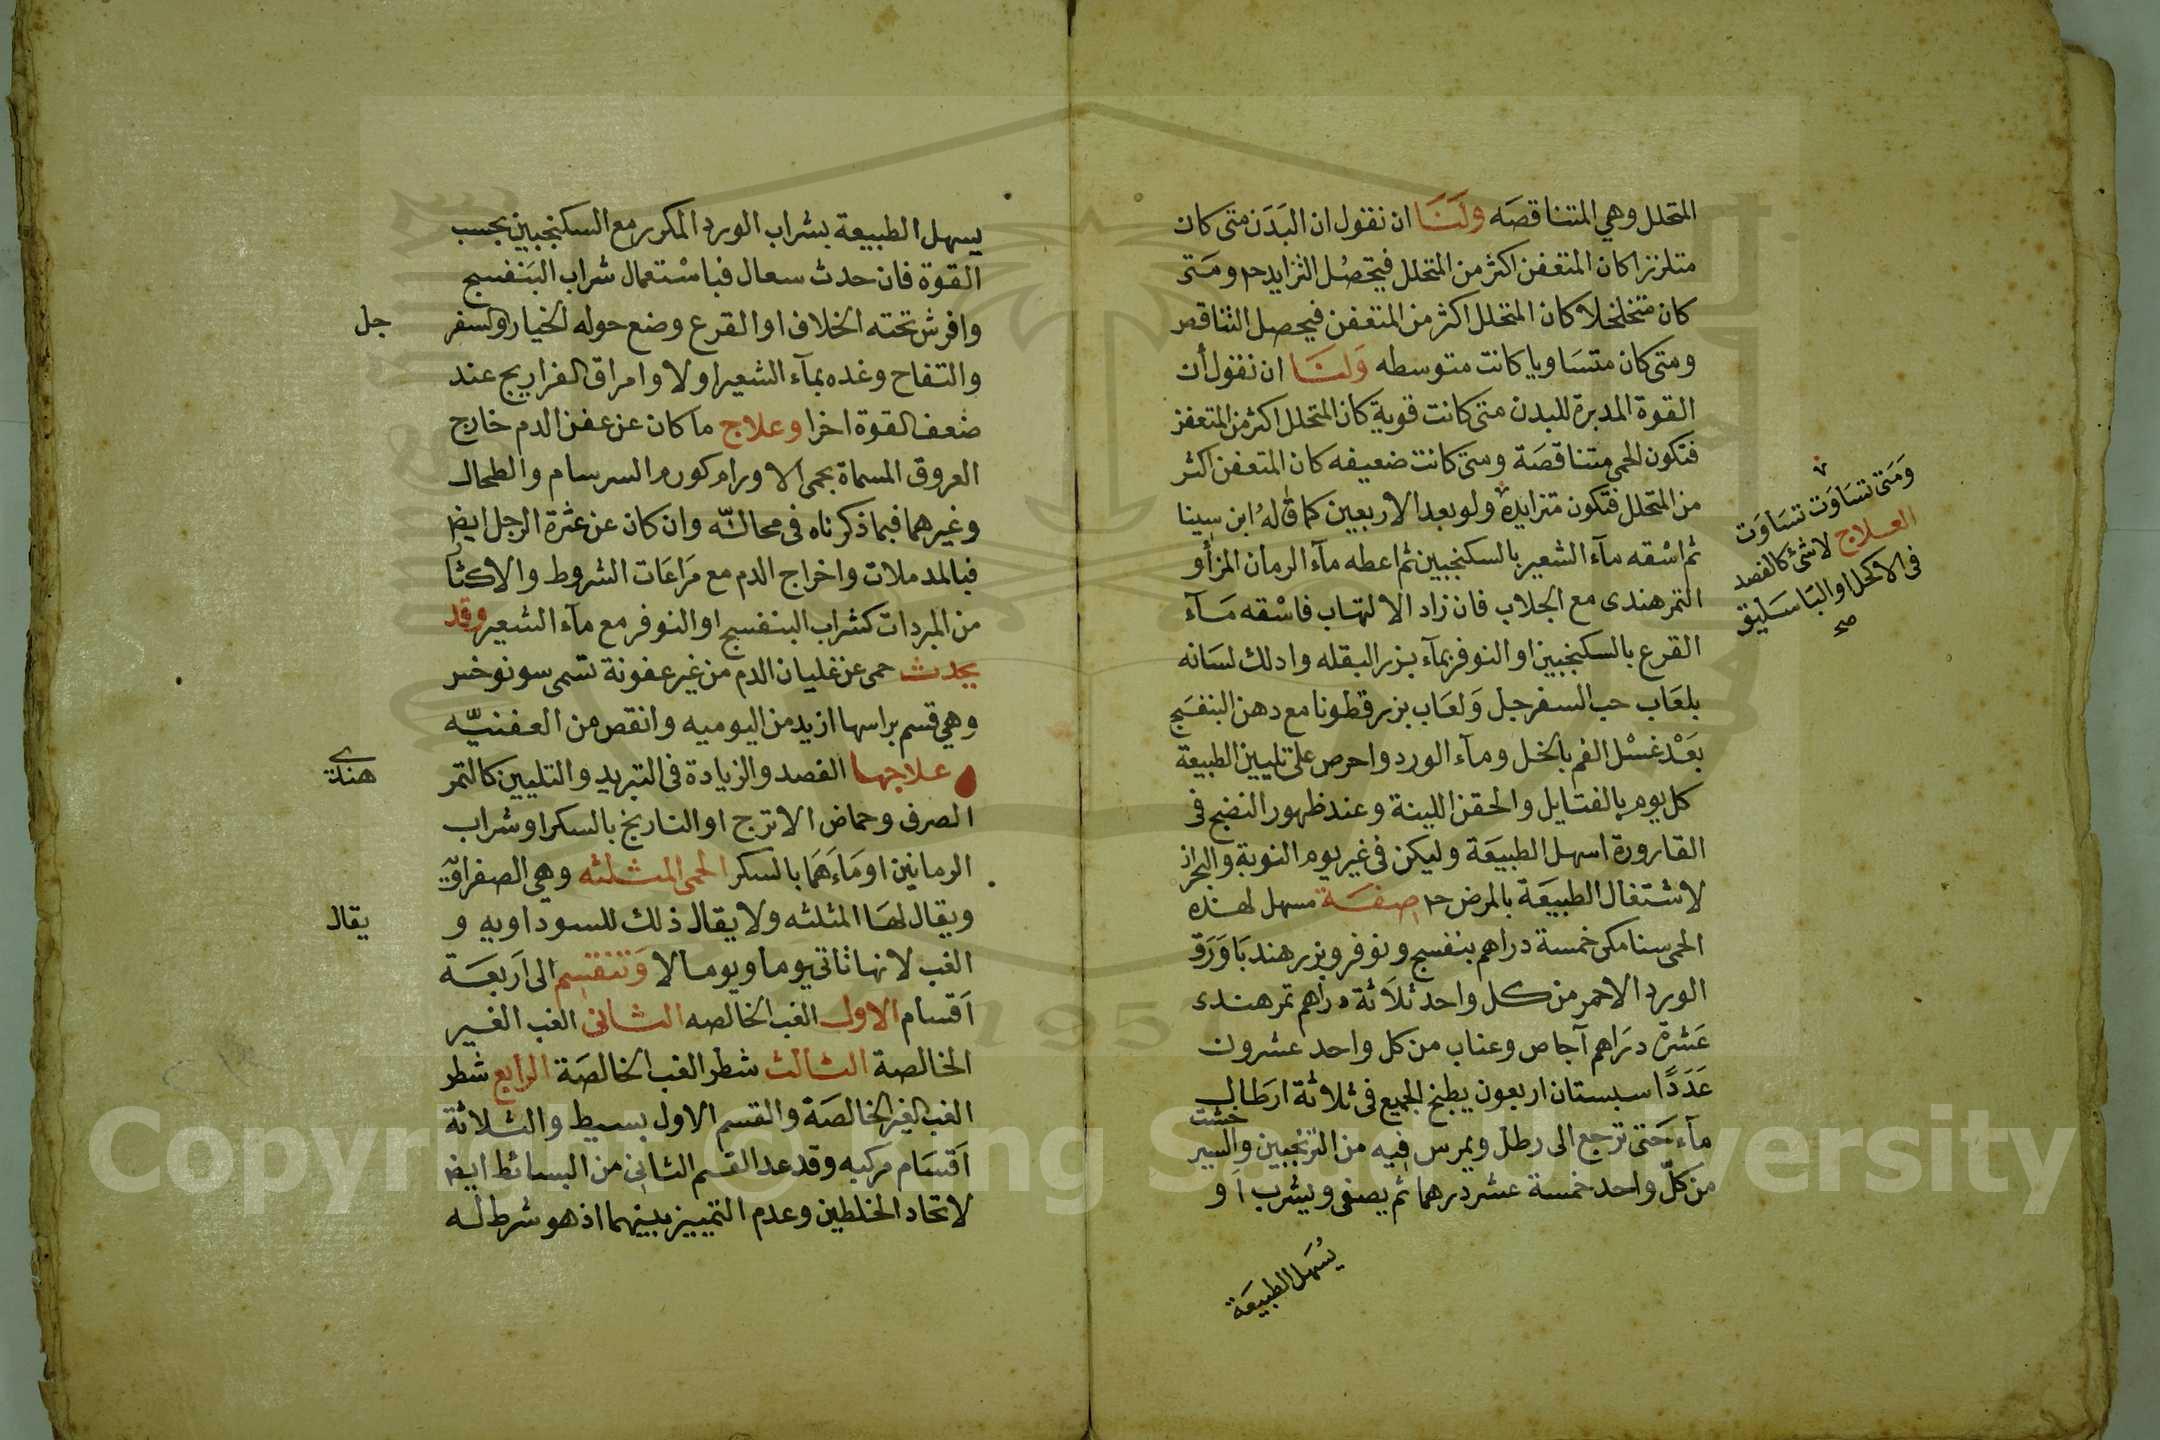 المتحلل وهي المتناقصه ولنا ان نقول ان البدن متى كان
متلززا كان المتعفن اكثر من المتحلل فيحصل التزايد ح ومتى
كان متخلخلا كان المتحلل اكثر من المتعفن فيحصل التناقص
ومتى كان متساويا كانت متوسطه ولنا ان نقول أن
القوة المدبرة للبدن متى كانت قوية كان المتحلل اكثر من المتعفن
فتكون الحمى متناقصة ومتى كانت ضعيفه كان المتعفن اكثر
من المتحلل فتكون متزايدة ولو بعد الاربعين كما قاله ابن سينا
ومتى تساوت تساوت
العلاج لا شئ كالفصد
فى الاكحل او الباسليق
صح
ثم اسقه مآء الشعير بالسكنجبين ثم اعطه مآء الرمان المز أو
التمر هندى مع الجلاب فان زاد الالتهاب فاسقه مآء
القرع بالسكنجبين او النوفر بمآء بزر البقله وادلك لسانه
بلعاب حب السفرجل ولعاب بزر قطونا مع دهن البنفسج
بعد غسل الفم بالخل ومآء الورد واحرص على تليين الطبيعة
كل يوم بالفتايل والحقن اللينة وعند ظهور النضج فى
القارورة اسهل الطبيعة وليكن فى غير يوم النوبة والبحران
لاشتغال الطبيعة بالمرض ح صفة مسهل لهذه
الحمى سنا مكى خمسة دراهم بنفسج ونوفر وبزر هندبا وورق
الورد الاحمر من كل واحد ثلاثة دراهم تمر هندى
عشرة دراهم آجاص وعناب من كل واحد عشرون
عددا سبستان اربعون يطبخ الجميع فى ثلاثة ارطال
مآء حتى ترجع الى رطل ويمرس فيه من الترنجبين والشير خشت
من كل واحد خمسة عشر درهما ثم يصفى ويشرب او
يسهل الطبيعة
يسهل الطبيعة بشراب الورد المكرر مع السكنجبين بحسب
القوة فان حدث سعال فباستعمال شراب البنفسج
وافرش تحته الخلاف او القرع وضع حوله الخيار والسفر
جل
والتفاح وغده بمآء الشعير اولا وامراق الفراريج عند
ضعف القوة اخرا وعلاج ما كان عن عفن الدم خارج
العروق المسماة بحمى الاورام كورم السرسام والطحال
وغيرهما فبما ذكرناه فى محالّه وان كان عن عثرة الرجل ايض
فبالمدملات واخراج الدم مع مراعات الشروط والاكثار
من المبردات كشراب البنفسج او النوفر مع مآء الشعير وقد
يحدث حمى عن غليان الدم من غير عفونة تسمى سونوخس
وهي قسم براسها ازيد من اليوميه وانقص من العفنيّه
علاجها الفصد والزيادة فى التبريد والتليين كالتمر
هندى
الصرف وحماض الاترج او النارنج بالسكر او شراب
الرمانين او ماءهما بالسكر الحمى المثلثه وهي الصفراوية
ويقال لها المثلثه ولا يقال ذلك للسوداويه و
يقال
الغب لانها تاتى يوما ويوما لا وتنقسم الى اربعة
اقسام الاول الغب الخالصه الثانى الغب الغير
الخالصة الثالث شطر الغب الخالصة الرابع شطر
الغب الغير الخالصة والقسم الاول بسيط والثلاثة
اقسام مركبه وقد عد القسم الثانى من البسائط ايض
لاتحاد الخلطين وعدم التمييز بينهما اذ هو شرط له
1957
Copyright © King Saud University